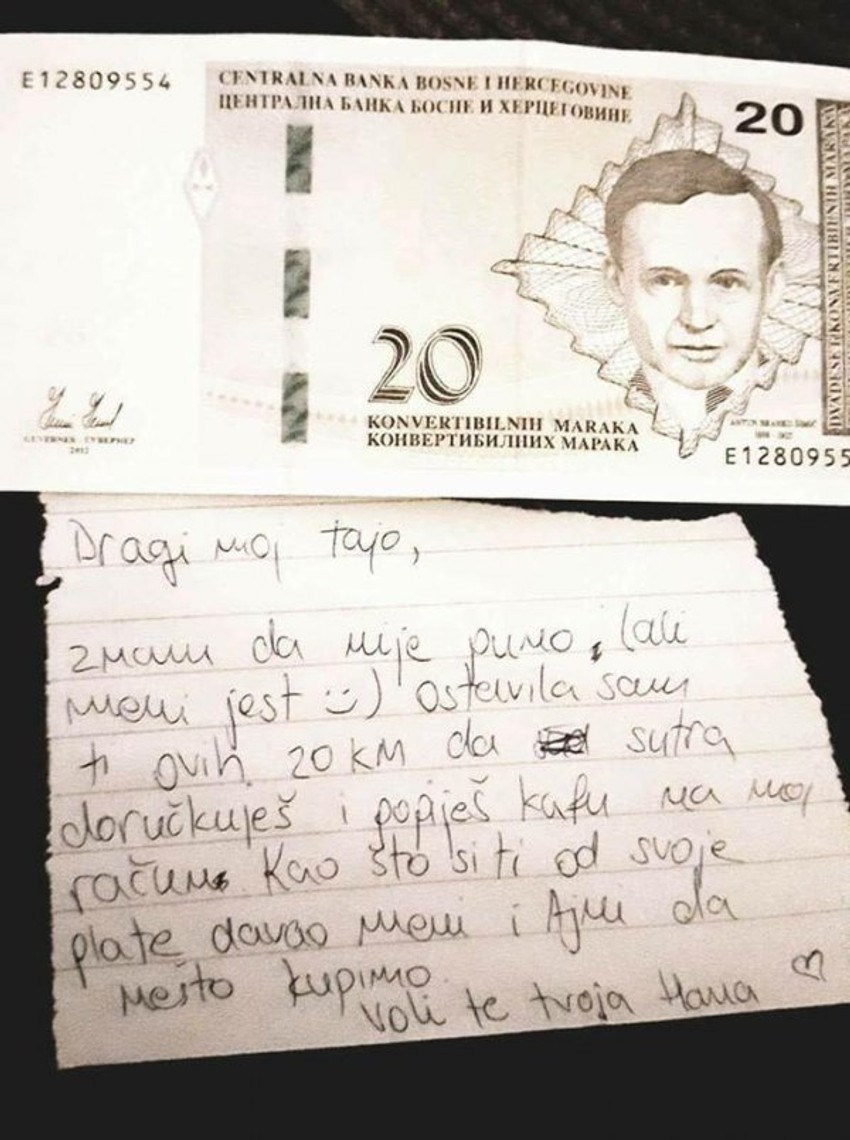 E12809554
CENTRALNA BANKA BOSNE I HERCEGOVINE
ЦЕНТРАЛНА БАНКА БОСНЕ И ХЕРЦЕГОВИНЕ
20
DVADESET KONVERTIBILNIH MARAKA
20
KONVERTIBILNIH MARAKA
КОНВЕРТИБИЛНИХ МАРАКА
GUVERNER - ГУВЕРНЕР
2012
ANTUN BRANKO ŠIMIĆ
1898 - 1925
E1280955
Dragi moj tajo,
znam da nije puno, (ali
meni jest :)) ostavila sam
ti ovih 20 KM da sutra
doručkuješ i popiješ kafu na moj
račun. Kao što si ti od svoje
plate davao meni i Ajni da
nešto kupimo.
Voli te tvoja Hana ♡